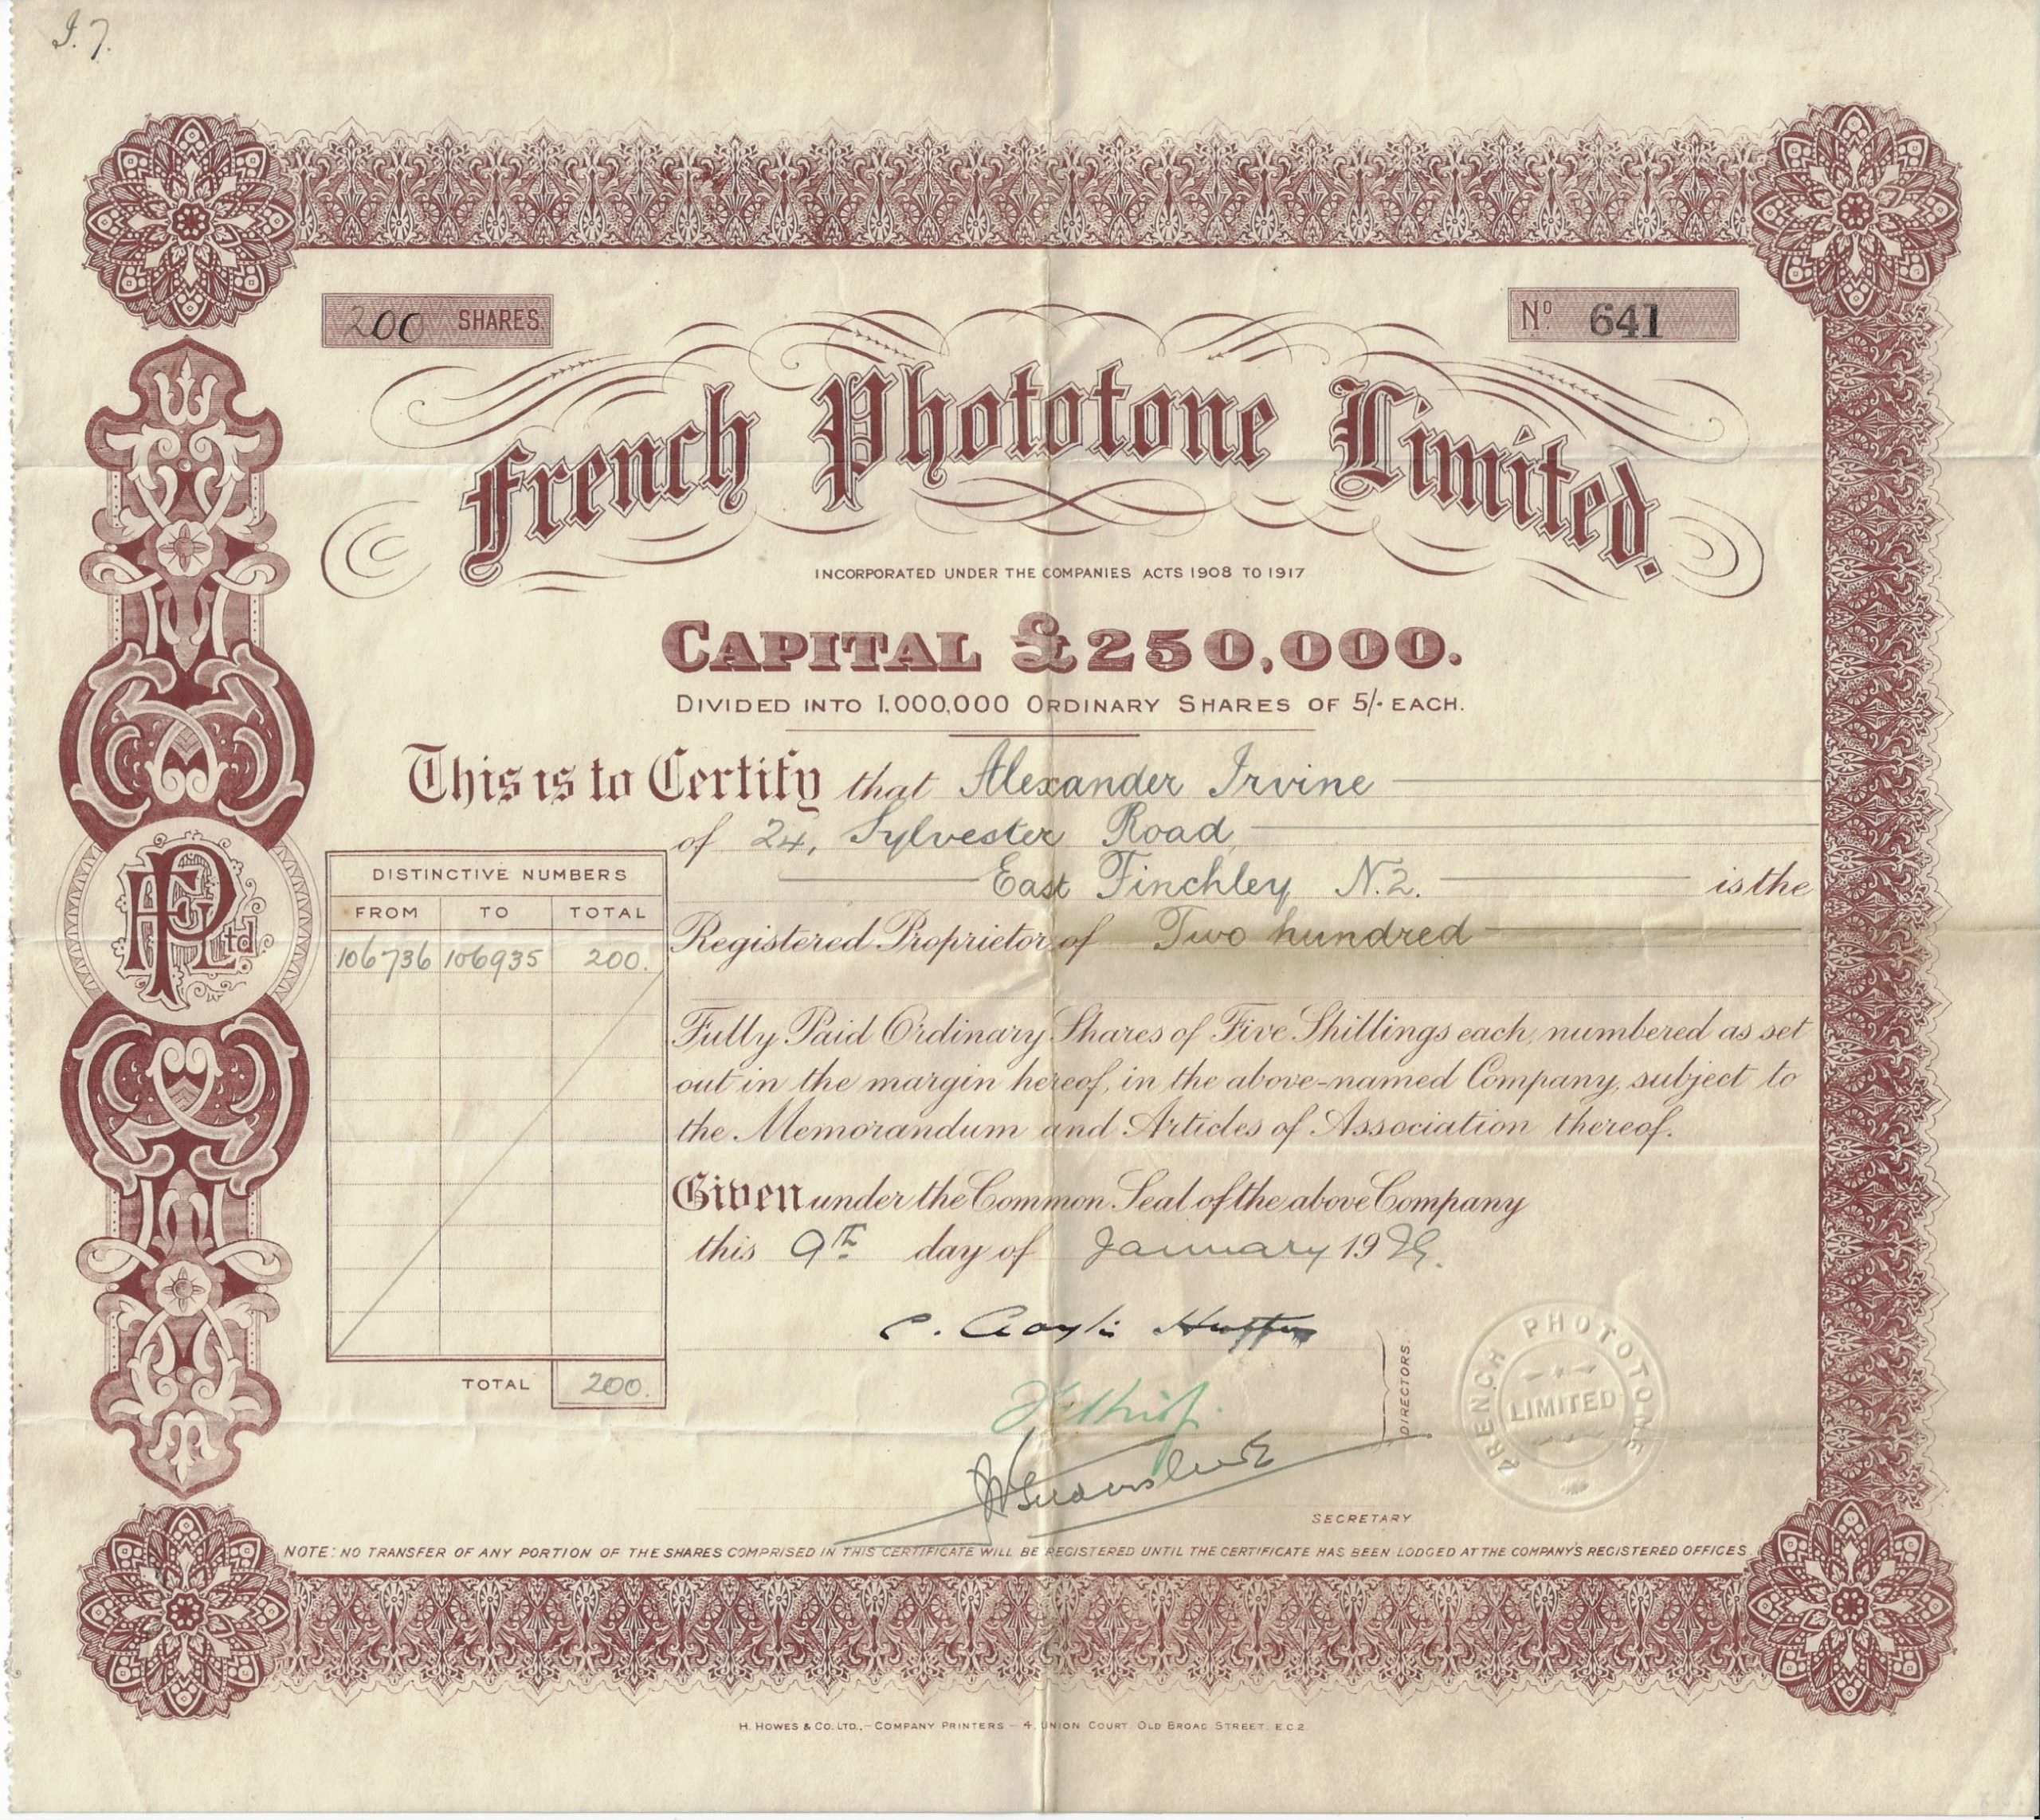 I. 7.
200 SHARES.
Nº 641
French Phototone Limited.
INCORPORATED UNDER THE COMPANIES ACTS 1908 TO 1917
CAPITAL £250,000.
DIVIDED INTO 1,000,000 ORDINARY SHARES OF 5/- EACH.
This is to Certify that Alexander Irvine
of 24, Sylvester Road,
East Finchley N.2. is the
Registered Proprietor of Two hundred
Fully Paid Ordinary Shares of Five Shillings each, numbered as set
out in the margin hereof, in the above-named Company, subject to
the Memorandum and Articles of Association thereof.
Given under the Common Seal of the above Company
this 9th day of January 1929.
DISTINCTIVE NUMBERS
FROM TO TOTAL
106736 106935 200.
TOTAL 200.
FP Ltd.
DIRECTORS.
SECRETARY
FRENCH PHOTOTONE
LIMITED
NOTE: NO TRANSFER OF ANY PORTION OF THE SHARES COMPRISED IN THIS CERTIFICATE WILL BE REGISTERED UNTIL THE CERTIFICATE HAS BEEN LODGED AT THE COMPANY'S REGISTERED OFFICES
H. HOWES & CO. LTD., – COMPANY PRINTERS – 4, UNION COURT, OLD BROAD STREET, E.C.2.